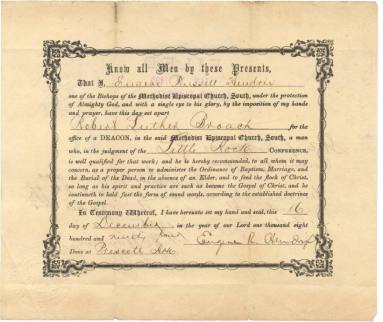 Know all Men by these Presents,
That I, Eugene Russell Hendrix
one of the Bishops of the Methodist Episcopal Church, South, under the protection
of Almighty God, and with a single eye to his glory, by the imposition of my hands
and prayer, have this day set apart
Robert Luther Broach for the
office of a DEACON, in the said Methodist Episcopal Church, South, a man
who, in the judgment of the Little Rock CONFERENCE,
is well qualified for that work; and he is hereby recommended, to all whom it may
concern, as a proper person to administer the Ordinance of Baptism, Marriage, and
the Burial of the Dead, in the absence of an Elder, and to feed the flock of Christ,
so long as his spirit and practice are such as become the Gospel of Christ, and he
continueth to hold fast the form of sound words, according to the established doctrines
of the Gospel.
In Testimony Whereof, I have hereunto set my hand and seal, this 16
day of December in the year of our Lord one thousand eight
hundred and ninety
Eugene R. Hendrix
Done at Prescott Ark